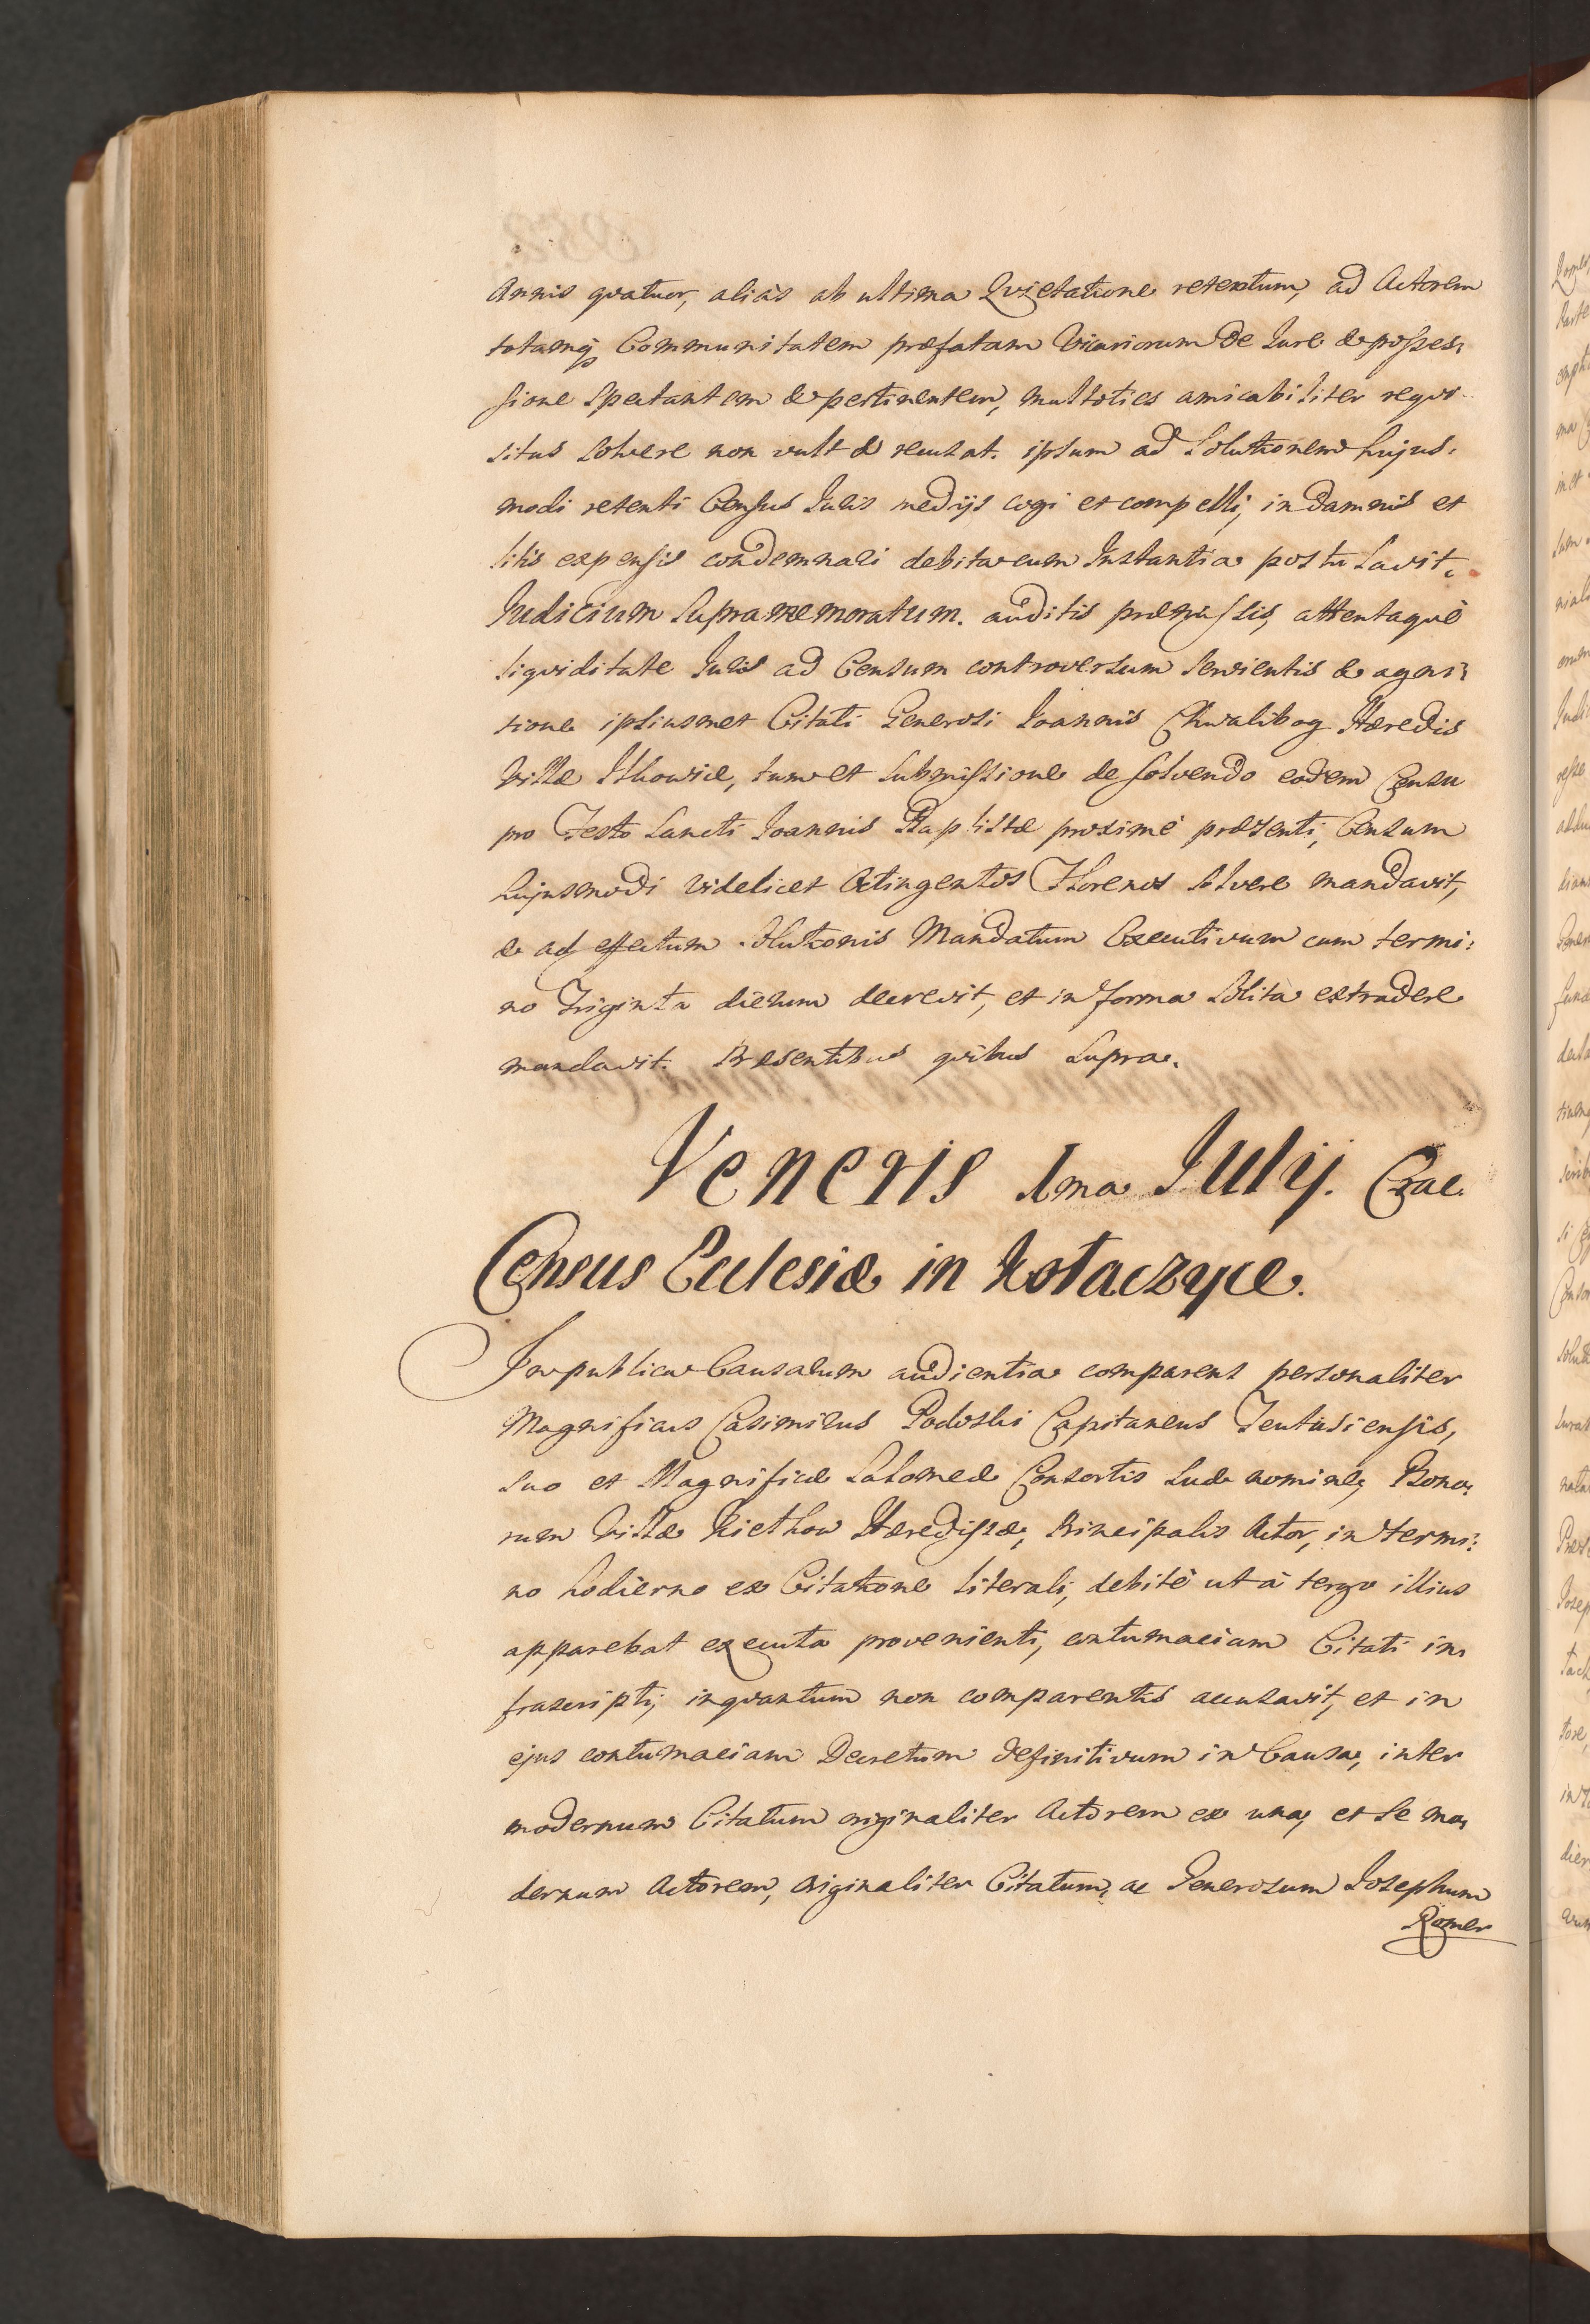 Annis qvatuor, aliàs ab ultima Qvietatione retentum, ad Actorem
totamq3 Communitatem præfatam Vicariorum de Jure & posses:
sione spectantem & pertinentem, multoties amicabiliter reqvi:
situs solvere non vult & recusat. ipsum ad Solutionem hujus:
modi retenti Census Juris medijs cogi et compelli, in damnis et
litis expensis condemnari debita cum Instantia postulavit.
Judicium Supramemoratum. auditis præmissis, attentaqué
liqviditate Juris ad Censum controversum servientis & agni:
tione ipsiusmet Citati Generosi Joannis Chwalibog Hæredis
Villæ Ilkowice, tum et Submissione de solvendo eodem Censu
pro Festo Sancti Joannis Baptistæ proximé præsenti, Censum
hujusmodi videlicet Octingentos Florenos Solvere mandavit,
& ad effectum Solutionis Mandatum Executivum cum termi:
no Triginta dierum decrevit, et in forma Solita extradere
mandavit. Præsentibus qvibus Supra.
Veneris 1ma Julij. Crac.
Census Ecclesiæ in Kołaczyce.
In publica Causarum audientia comparens personaliter
Magnificus Casimirus Podoski Capitaneus
suo et Magnificæ Salomeæ Consortis suæ nomine, Bono:
rum Villæ Hæredissæ, Principalis Actor, in termi:
no hodierno ex Citatione literali, debité ut à tergo illius
apparebat executa provenienti, contumaciam Citati in:
frascripti, inqvantum non comparentis accusavit, et in
ejus contumaciam Decretum definitivum in Causa, inter
modernum Citatum originaliter Actorem ex una, et se mo:
dernum Actorem, originaliter Citatum, ac Generosum Josephum
Romer